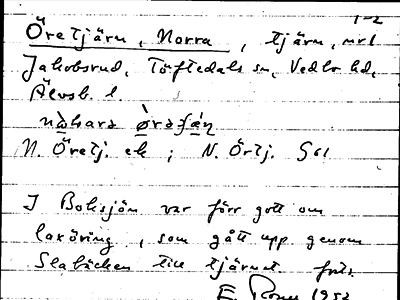 1-2
Öretjärn, Norra, tjärn, nrl
Jakobsrud, Töftedals sn, Vedbo hd,
Älvsb. l.
nòhara
N. Öretj. ek ; N. Örtj. G61
I Boksjön var förr gott om
laxöring, som gått upp genom
Slabäcken till tjärnet. forts.
E. 1952